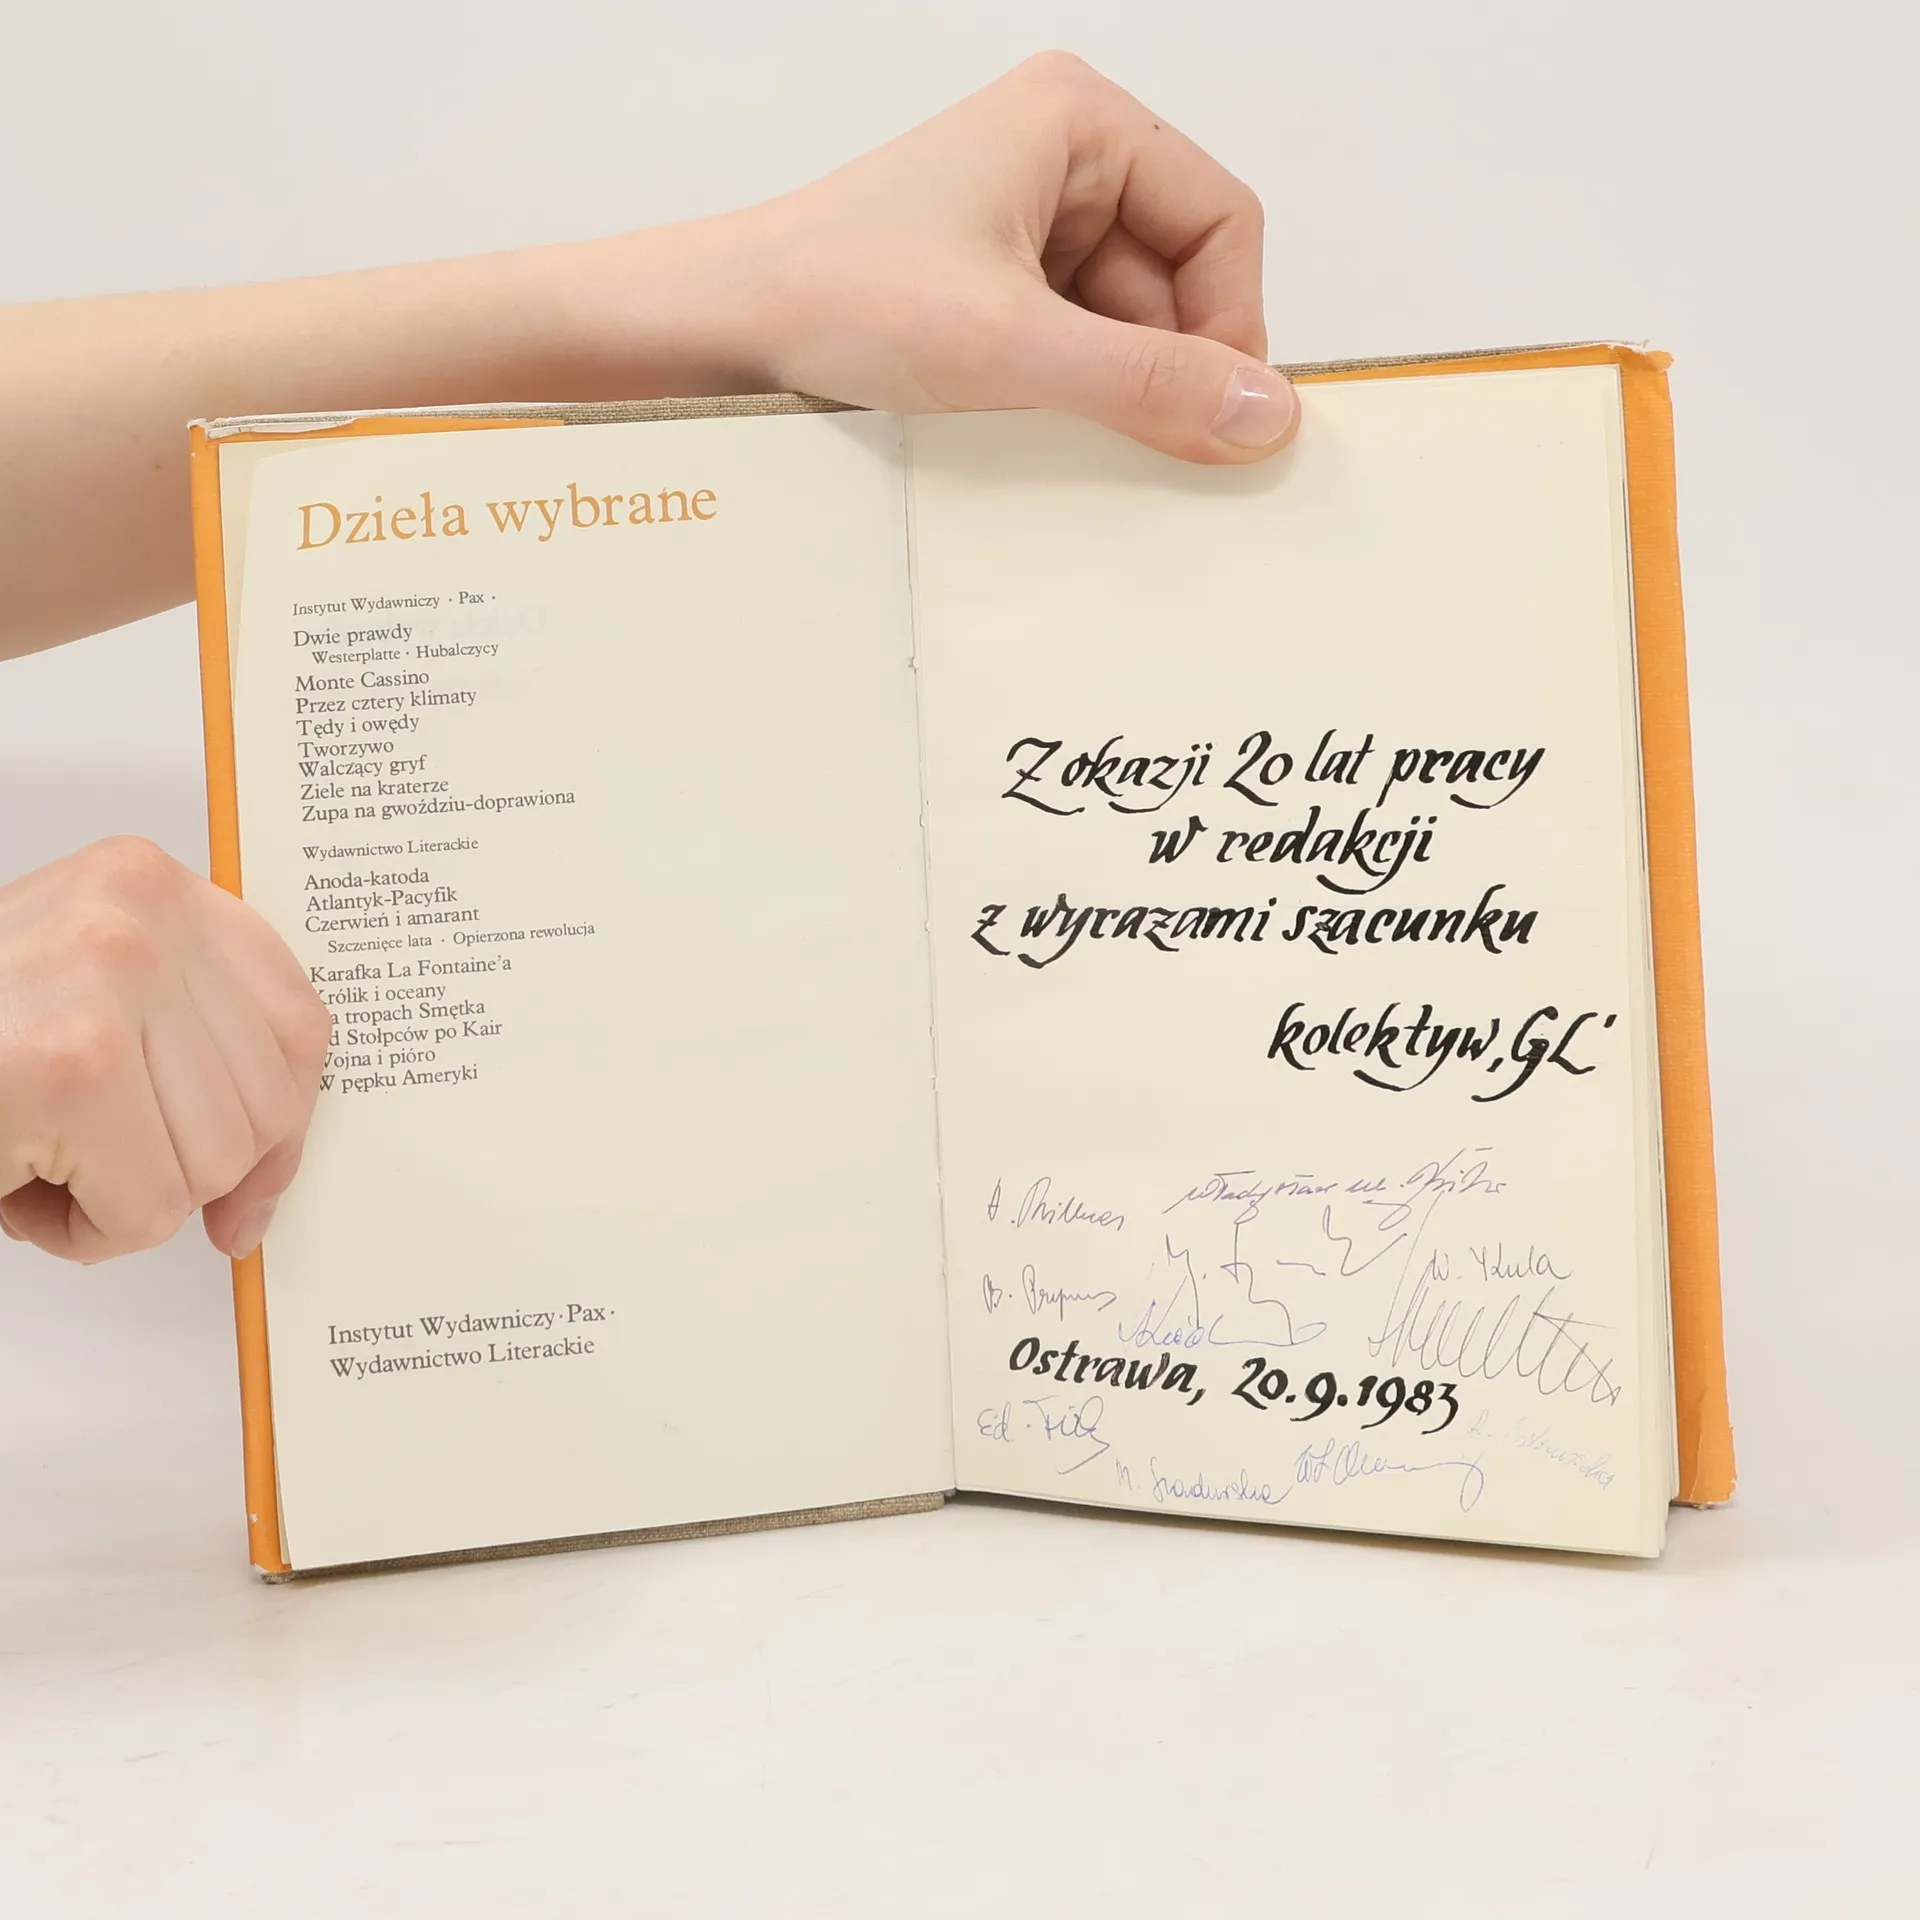 Dzieła wybrane
Instytut Wydawniczy · Pax ·
Dwie prawdy
Westerplatte · Hubalczycy
Monte Cassino
Przez cztery klimaty
Tędy i owędy
Tworzywo
Walczący gryf
Ziele na kraterze
Zupa na gwoździu-doprawiona
Wydawnictwo Literackie
Anoda-katoda
Atlantyk-Pacyfik
Czerwień i amarant
Szczenięce lata · Opierzona rewolucja
Karafka La Fontaine'a
Królik i oceany
a tropach Smętka
d Stołpców po Kair
Wojna i pióro
W pępku Ameryki
Instytut Wydawniczy · Pax ·
Wydawnictwo Literackie
Z okazji 20 lat pracy
w redakcji
z wyrazami szacunku
kolektyw „GL"
W. Kula
Ostrawa, 20.9.1983